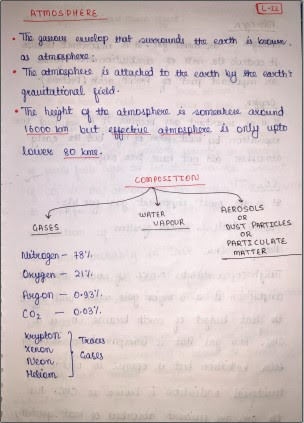 ATMOSPHERE
L-22
• The gaseous envelop that surrounds the earth is known
as atmosphere.
• The atmosphere is attached to the earth by the earth's
gravitational field.
• The height of the atmosphere is somewhere around
16000 km but effective atmosphere is only upto
lower 80 kms.
COMPOSITION
GASES
WATER
VAPOUR
AEROSOLS
OR
DUST PARTICLES
OR
PARTICULATE
MATTER
Nitrogen – 78%
Oxygen – 21%
Argon – 0.93%
CO2 – 0.03%
Krypton
Xenon
Neon
Helium
Traces
Gases